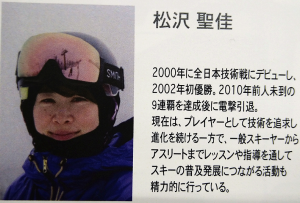 松沢 聖佳
SMITH
2000年に全日本技術戦にデビューし、
2002年初優勝。2010年前人未到の
9連覇を達成後に電撃引退。
現在は、プレイヤーとして技術を追求し
進化を続ける一方で、一般スキーヤーから
アスリートまでレッスンや指導を通して
スキーの普及発展につながる活動も
精力的に行っている。